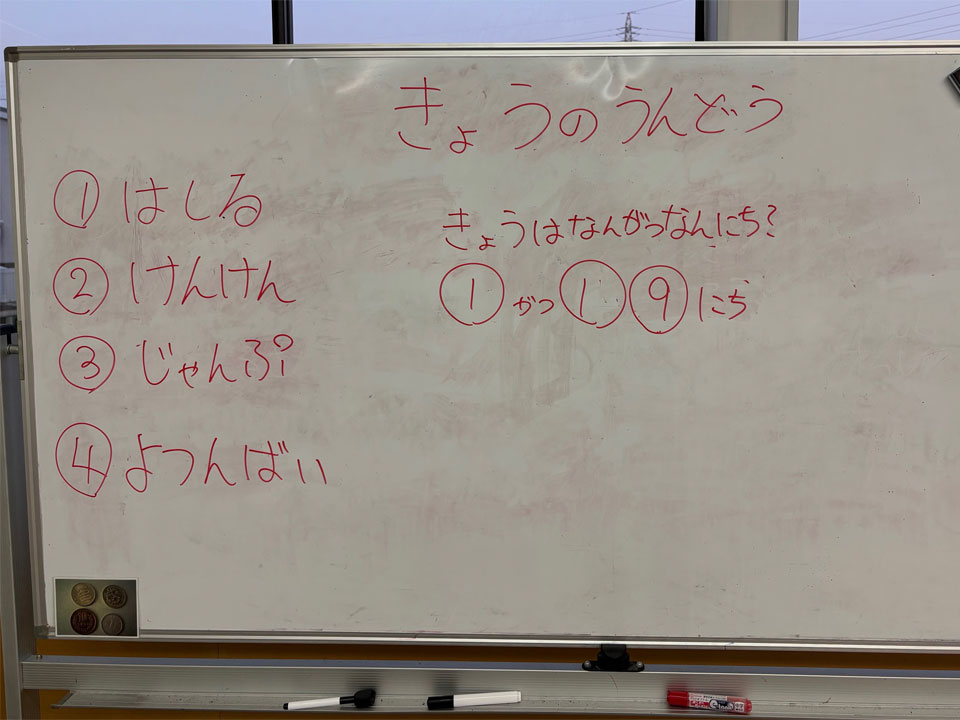 きょうのうんどう
① はしる
② けんけん
③ じゃんぷ
④ よつんばい
きょうはなんがつなんにち?
① がつ ① ⑨ にち